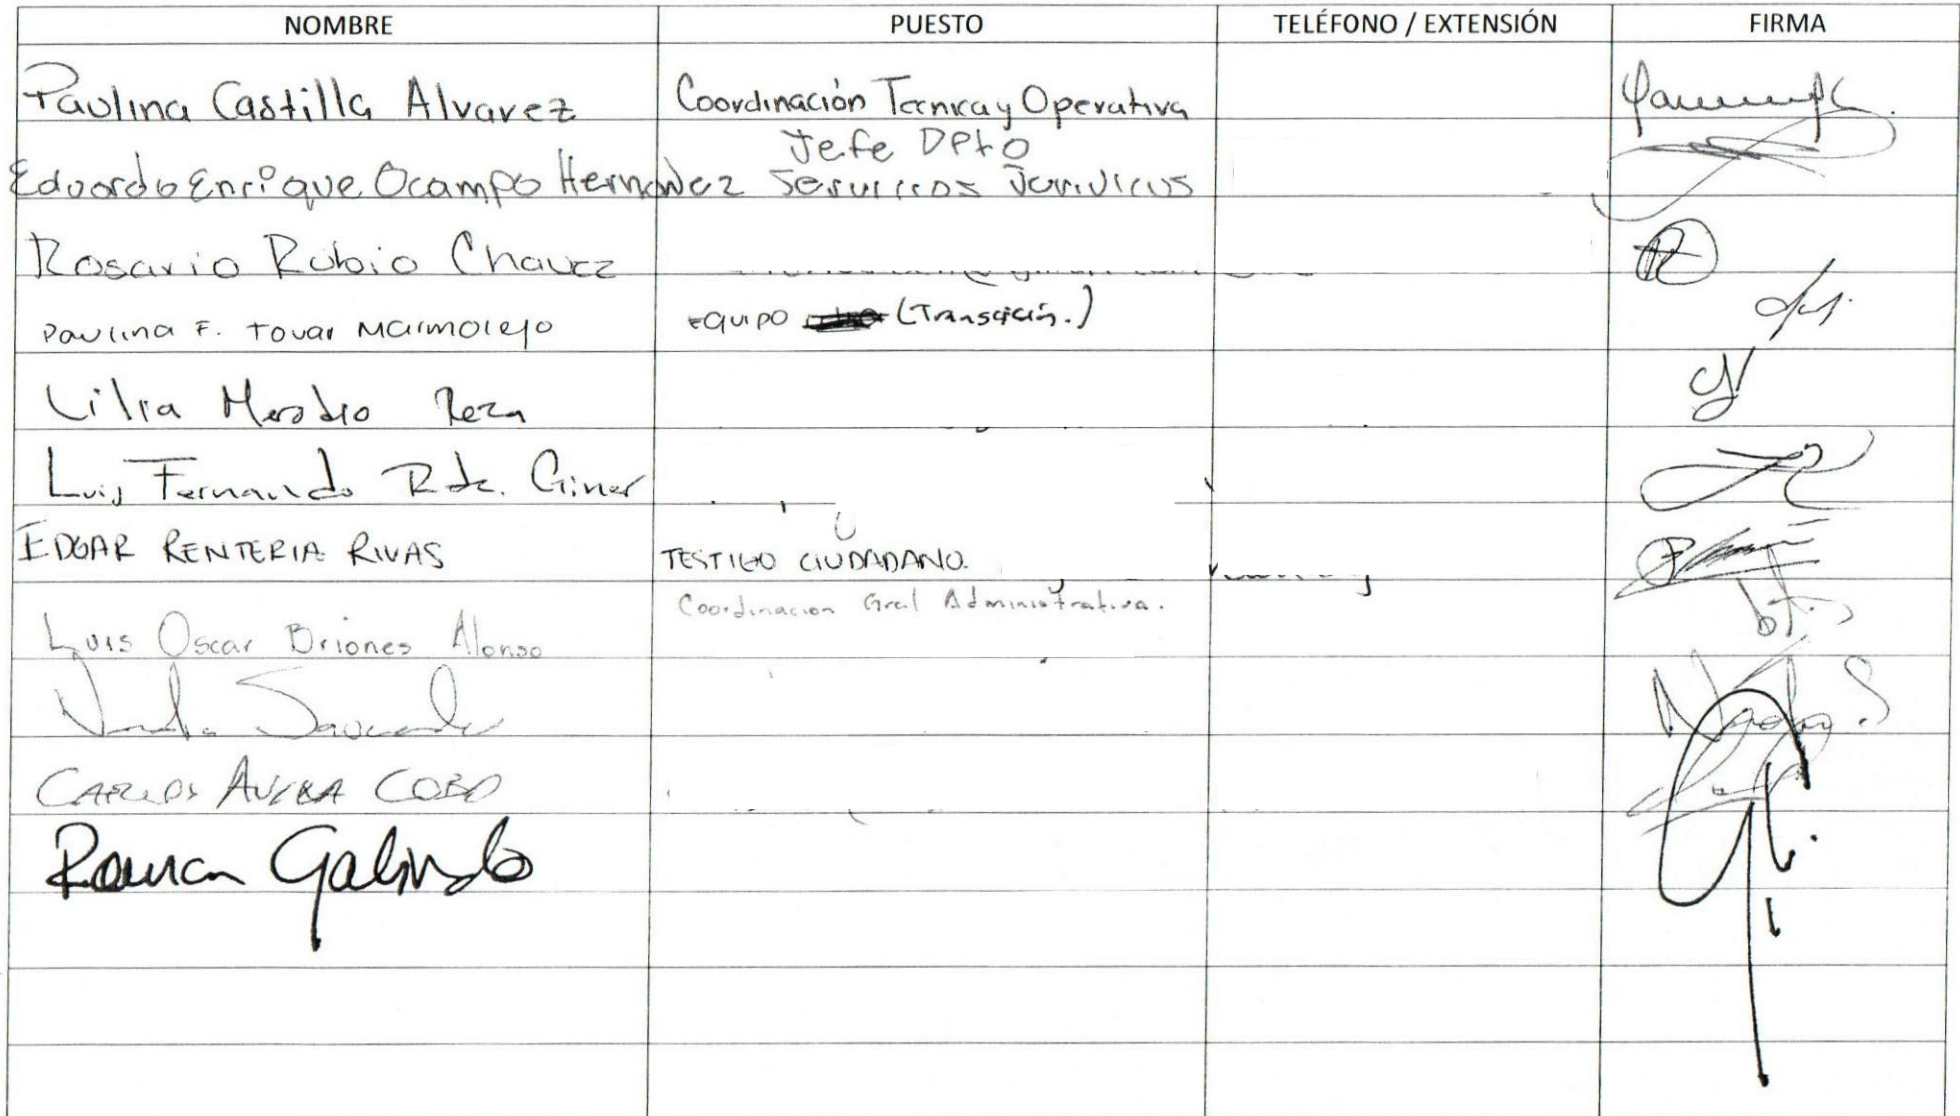 NOMBRE PUESTO TELÉFONO / EXTENSIÓN FIRMA
Paulina Castilla Alvarez Coordinación Tecnica y Operativa
Jefe Dpto
Eduardo Enrique Ocampo Hernandez Servicios Juridicos
Rosario Rubio Chavez
Paulina F. Tovar Marmolejo Equipo (Transición.)
Lilia Reza
Luis Fernando Rdz. Giner
EDGAR RENTERIA RIVAS TESTIGO CIUDADANO.
Coordinacion Gral Administrativa.
Luis Oscar Briones Alonso
CARLOS COBO
Galindo